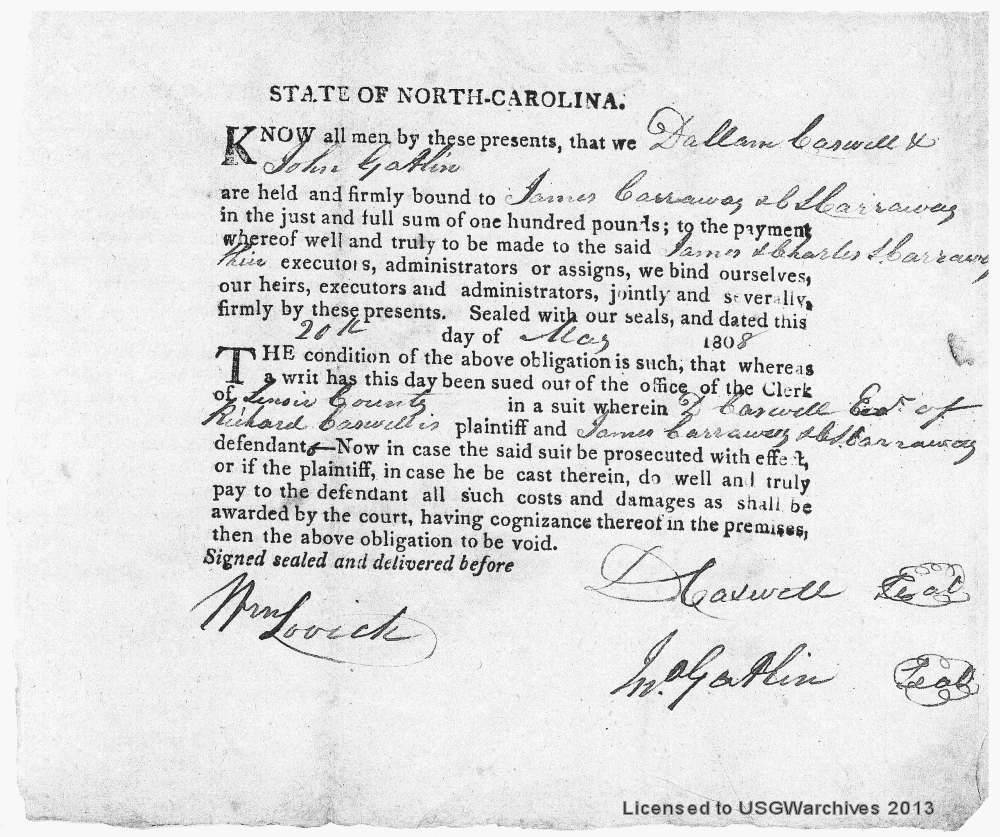 STATE OF NORTH-CAROLINA.
KNOW all men by these presents, that we Dallam Caswell &
John Gatlin
are held and firmly bound to James Carraway & C S Carraway
in the just and full sum of one hundred pounds; to the payment
whereof well and truly to be made to the said James & Charles S Carraway
their executors, administrators or assigns, we bind ourselves,
our heirs, executors and administrators, jointly and severally,
firmly by these presents. Sealed with our seals, and dated this
20th day of May 1808
THE condition of the above obligation is such, that whereas
a writ has this day been sued out of the office of the Clerk
of Lenoir County in a suit wherein D Caswell Exr. of
Richard Caswell is plaintiff and James Carraway & C. S. Carraway
defendants—Now in case the said suit be prosecuted with effect,
or if the plaintiff, in case he be cast therein, do well and truly
pay to the defendant all such costs and damages as shall be
awarded by the court, having cognizance thereof in the premises,
then the above obligation to be void.
Signed sealed and delivered before
D Caswell Seal
Wm Lovick
Jno. Gatlin Seal
Licensed to USGWarchives 2013